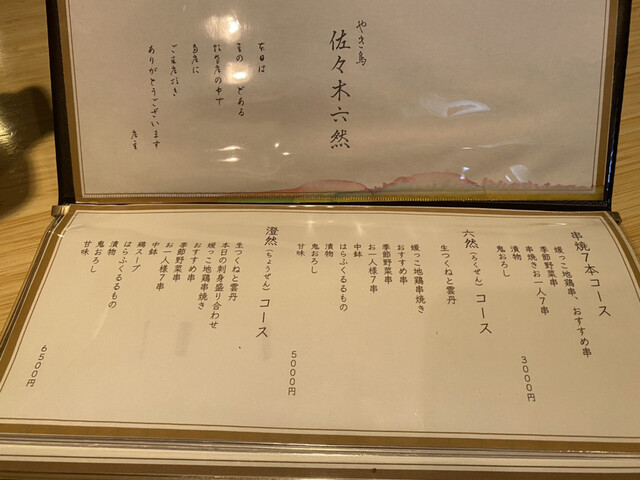 やき鳥
佐々木六然
本日は
数ある
お店の中で
当店に
ご来店頂き
ありがとうございます
店主
串焼7本コース
媛っこ地鶏串、おすすめ串
季節野菜串
串焼きお一人7串
漬物
鬼おろし
3000円
六然(りくぜん)コース
生つくねと雲丹
媛っこ地鶏串焼き
おすすめ串
季節野菜串
お一人様7串
中鉢
はらふくるるもの
漬物
鬼おろし
甘味
5000円
澄然(ちょうぜん)コース
生つくねと雲丹
本日の刺身盛り合わせ
媛っこ地鶏串焼き
おすすめ串
季節野菜串
お一人様7串
中鉢
鶏スープ
はらふくるるもの
漬物
鬼おろし
甘味
6500円